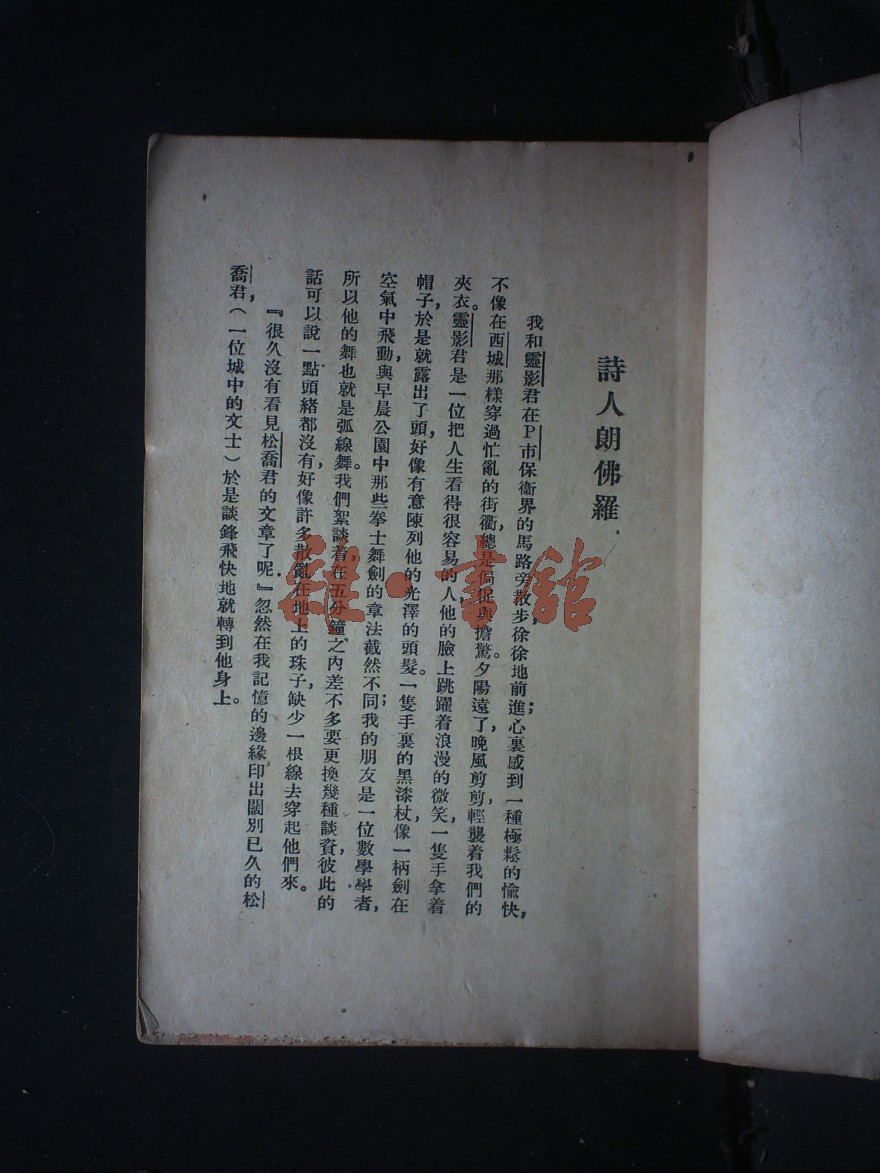 詩人朗佛羅
我和靈影君在P市保衞界的馬路旁散步徐徐地前進；心裏感到一種極鬆的愉快，
不像在西城那樣穿過忙亂的街衢，總是侷促與擔驚。夕陽遠了，晚風剪剪，輕襲着我們的
夾衣。靈影君是一位把人生看得很容易的人，他的臉上跳躍着浪漫的微笑，一隻手拿着
帽子，於是就露出了頭，好像有意陳列他的光澤的頭髮。一隻手裏的黑漆杖，像一柄劍在
空氣中飛動，與早晨公園中那些拳士舞劍的章法截然不同；我的朋友是一位數學學者，
所以他的舞也就是弧線舞。我們絮談着，在五分鐘之內差不多要更換幾種談資，彼此的
話可以說一點頭緒都沒有，好像許多散亂在地上的珠子，缺少一根線去穿起他們來。
『很久沒有看見松喬君的文章了呢。』忽然在我記憶的邊緣印出闊別已久的松
喬君，（一位城中的文士）於是談鋒飛快地就轉到他身上。
羅·書館